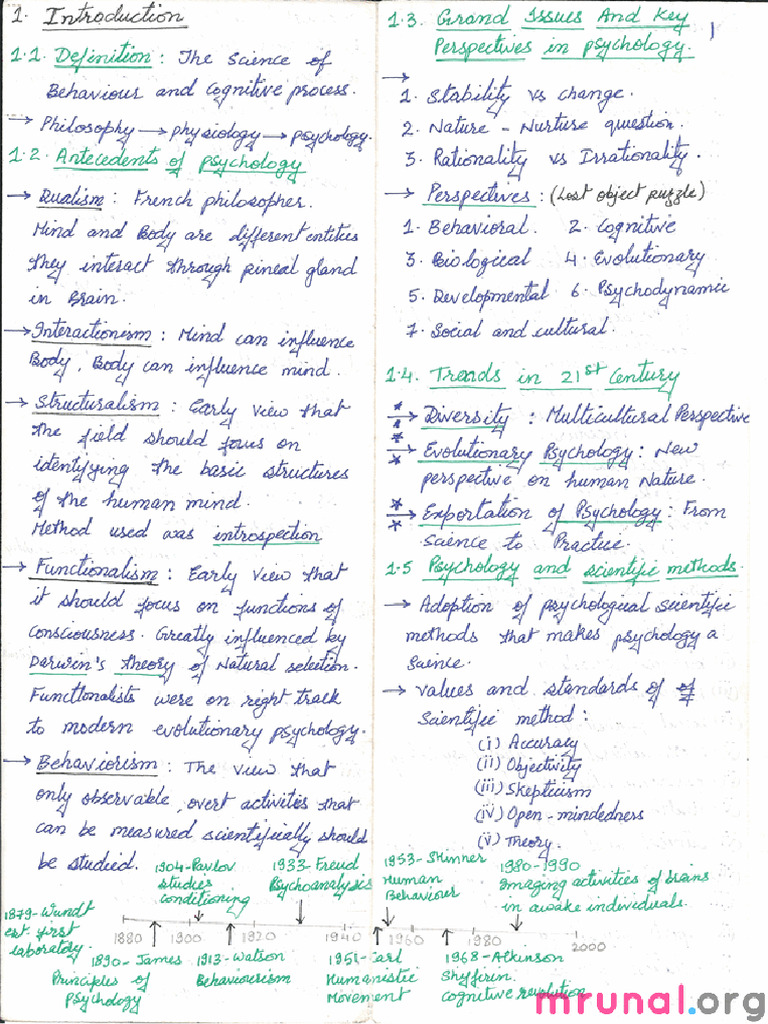 1. Introduction
1.1. Definition : The science of
Behaviour and cognitive process.
→ Philosophy → physiology → psychology.
1.2. Antecedents of psychology
→ Dualism : French philosopher.
Mind and Body are different entities
they interact through pineal gland
in Brain.
→ Interactionism : Mind can influence
Body, Body can influence mind.
→ Structuralism : Early view that
the field should focus on
identifying the basic structures
of the human mind.
Method used was introspection
→ Functionalism : Early view that
it should focus on functions of
consciousness. Greatly influenced by
Darwin's theory of Natural selection.
Functionalists were on right track
to modern evolutionary psychology.
→ Behaviorism : The view that
only observable, overt activities that
can be measured scientifically should
be studied.
1.3. Grand Issues And Key
Perspectives in psychology.
1
→
1. Stability vs change.
2. Nature - Nurture question.
3. Rationality vs Irrationality.
→ Perspectives : (Lost object puzzle)
1. Behavioral 2. Cognitive
3. Biological 4. Evolutionary
5. Developmental 6. Psychodynamic
7. Social and cultural.
1.4. Trends in 21st Century
→ Diversity : Multicultural Perspective
→ Evolutionary Psychology : New
perspective on human Nature.
→ Exportation of Psychology : From
Science to Practice.
1.5 Psychology and scientific methods.
→ Adoption of psychological scientific
methods that makes psychology a
Science.
→ Values and standards of of
Scientific method :
(i) Accuracy
(ii) Objectivity
(iii) Skepticism
(iv) Open-mindedness
(v) Theory.
1879-Wundt
est first
laboratory.
1904-Pavlov
studies
conditioning
1933-Freud
Psychoanalysis
1953-Skinner
Human
Behaviour
1980-1990
Imaging activities of brains
in awake individuals.
1880 1900 1920 1940 1960 1980 2000
1890-James
Principles of
psychology
1913-Watson
Behaviourism
1951-Carl
Humanistic
Movement
1968-Atkinson
Shyfirin.
cognitive revolution
mrunal.org